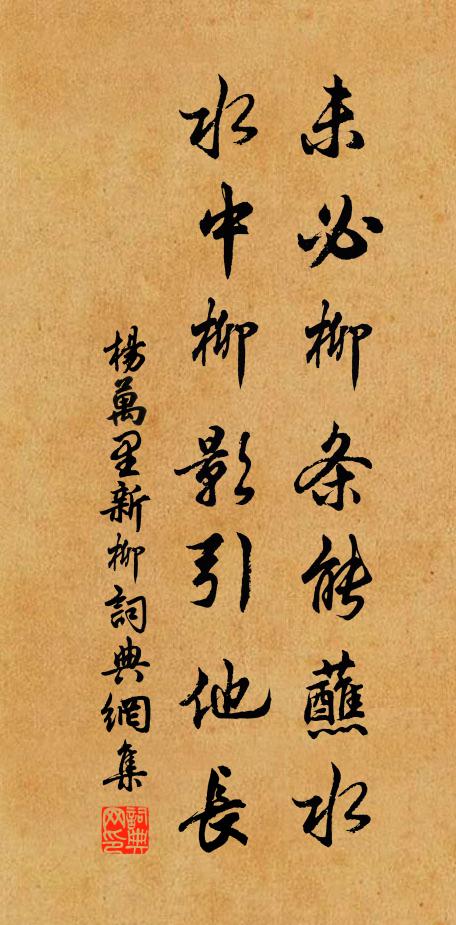 未必柳条能蘸水
水中柳影引他長
楊萬里新柳詞典網集
詞典
网印